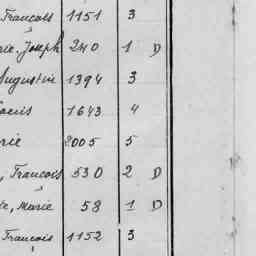 François 1151 3
rie, Joseph 240 1 D
Augustin 1394 3
Louis 1643 4
rie 2005 5
, François 530 2 D
ie, Marie 58 1 D
François 1152 3